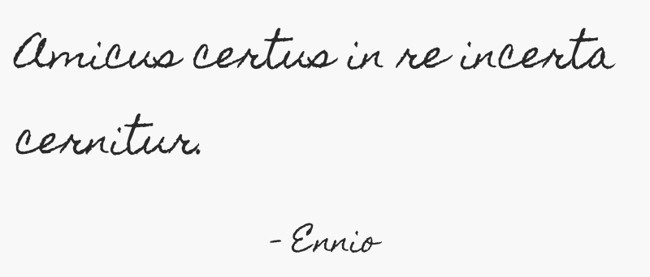 Amicus certus in re incerta
cernitur.
- Ennio